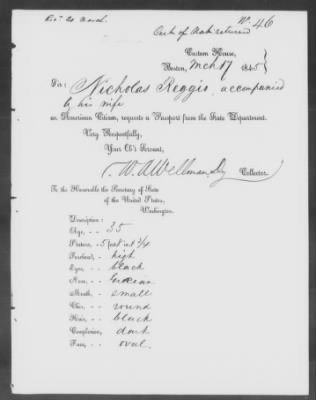 Rec. 20 March.
No. 46
Cert. of Nat. returned
Custom House,
Boston, Mch 17 1845
Sir:
Nicholas Reggio accompanied
by his wife
an American Citizen, requests a Passport from the State Department.
Very Respectfully,
Your Ob't Servant,
W. A. Wellman, Dy Collector
To the Honorable the Secretary of State
of the United States,
Washington.
Description:
Age, - - 35
Stature, - 5 feet in
Forehead, - high
Eyes, - - black
Nose, - - Grecian
Mouth, - small
Chin, - - round
Hair, - - black
Complexion, dark
Face, - - oval.